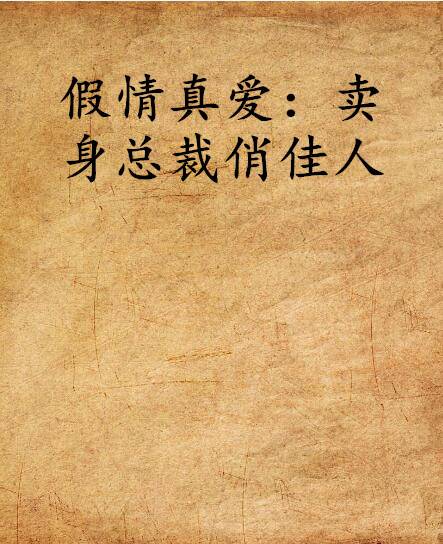 假情真爱：卖
身总裁俏佳人